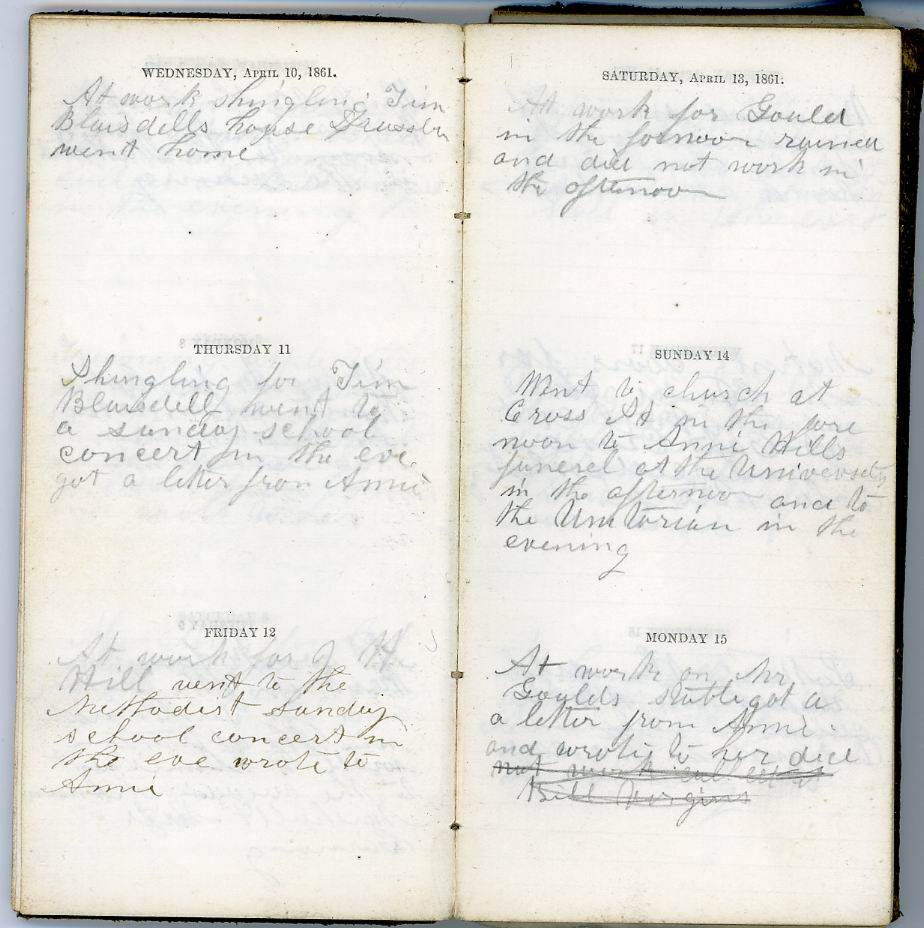 WEDNESDAY, APRIL 10, 1861.
At work shingling Tim
Blaisdells house
went home
THURSDAY 11
Shingling for Tim
Blaisdell went to
a sunday school
concert in the eve
got a letter from Annie
FRIDAY 12
At work for J H
Hill went to the
Methodist sunday
school concert in
the eve wrote to
Annie
SATURDAY, APRIL 13, 1861.
At work for Gould
in the forenoon rained
and did not work in
the afternoon
SUNDAY 14
Went to church at
Cross St in the fore
noon to Annie Hills
funerel at the Universety
in the afternoon and to
the Unitarian in the
evening
MONDAY 15
At work on Mr
Goulds stable got a
a letter from Annie
and wrote to her did
not work
Bill